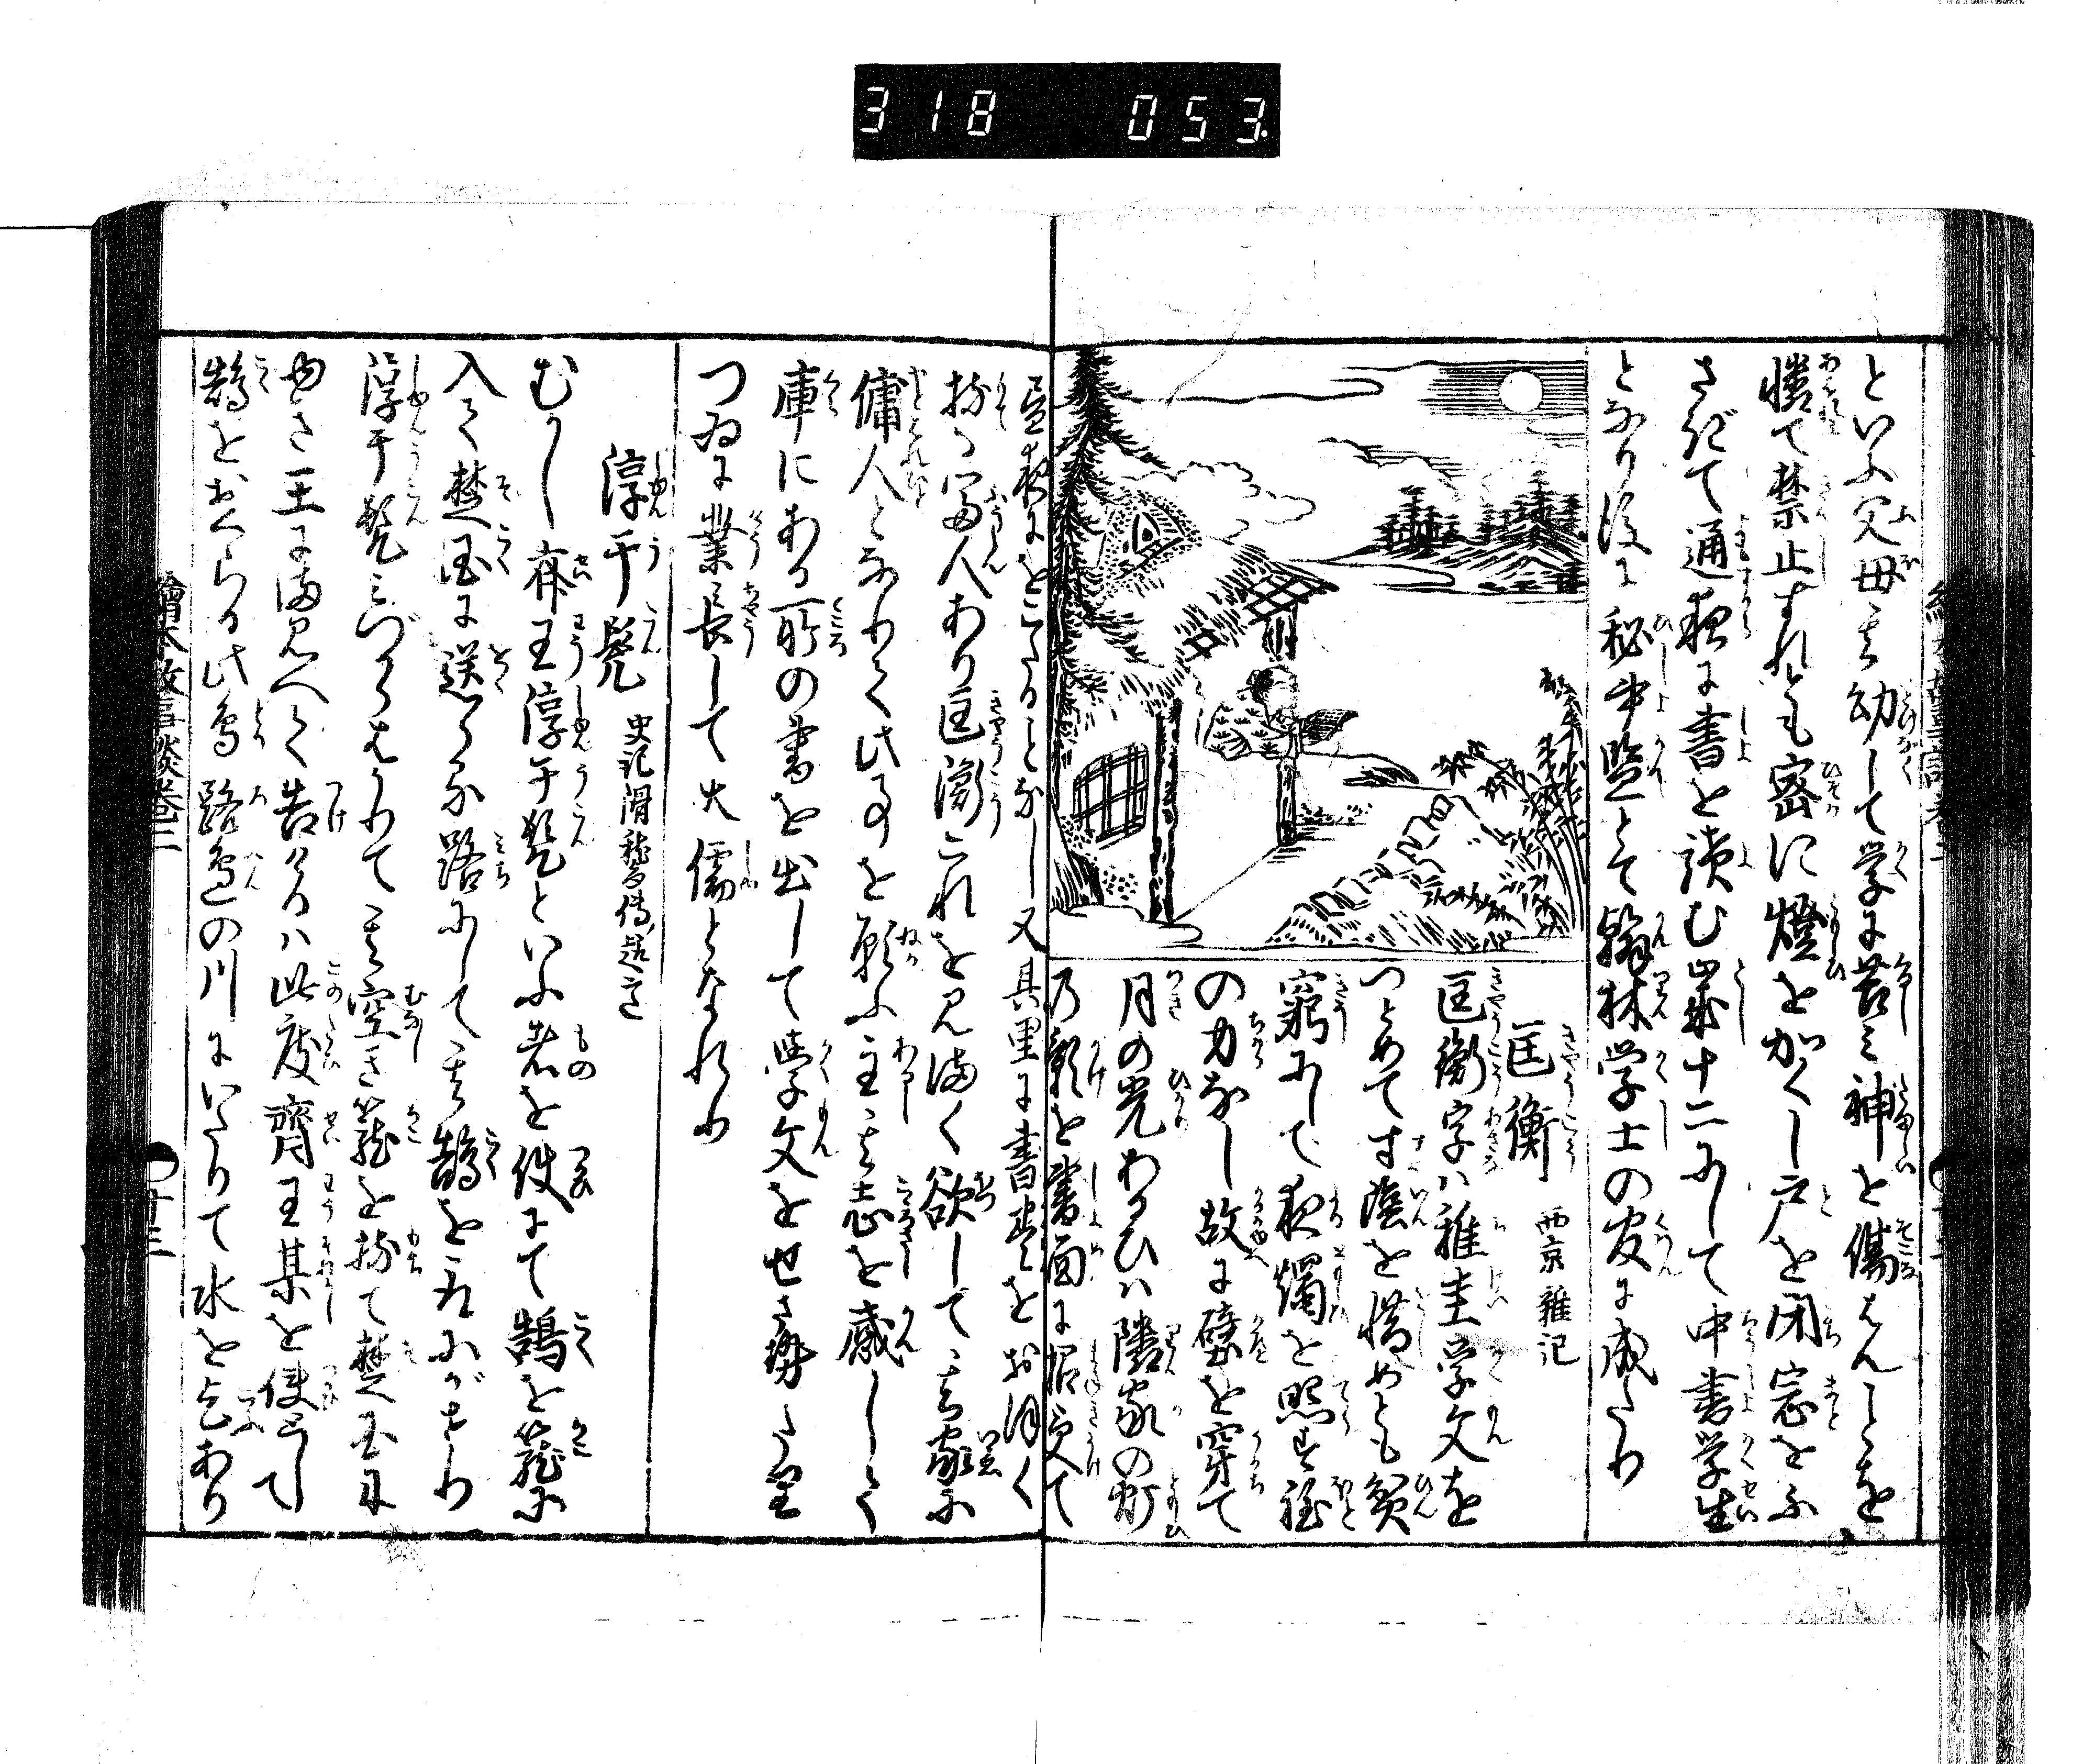 318 053
といふ父母其幼して学に苦み神を傷はんことを
憐て禁止すれども密に燈をかくし戸を閉窓をふ
さぎて通夜に書を読む歳十二にして中書学生
となり後に秘书監とて翰林学士の官に成たり
匡衡 西京雑記
匡衡字ハ稚圭学文を
つとめて寸陰を惜めども貧
窮にして夜燭を照す程
の力なし故に壁を穿て
月の光あるひハ隣家の灯
乃影を書面に招受て
昼夜におこたることなし又其里に書巻をお
持る富人あり匡衡これを見まく欲して其家に
傭人となりて此事を願ふ主其志を感して
庫にある所の書を出して学文をせさ
つゐに業長して大儒となれり
淳于髡 史記滑稽傳
むかし齊王淳于髡といふ者を使にて鵠を籠に
入て楚国に送るに路にして其鵠を
淳于髡みづから其空き籠を持て楚国に
王にまみへて告けるハ此度齊王某を使として
鵠をおくらる此鳥路邊の川にいたりて水をあり
繪本故事談巻二
廿三